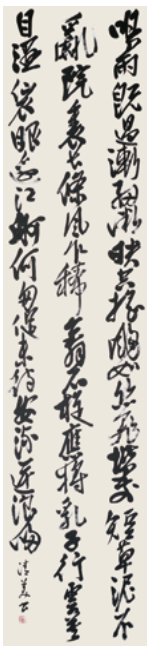 鳴雨既過漸細微映空搖颺如絲飛階前短草泥不
亂院裏長條風乍稀舞石旋應將乳子行雲莫
自濕仙衣眼邊江舸何匆促未待安流逆浪歸